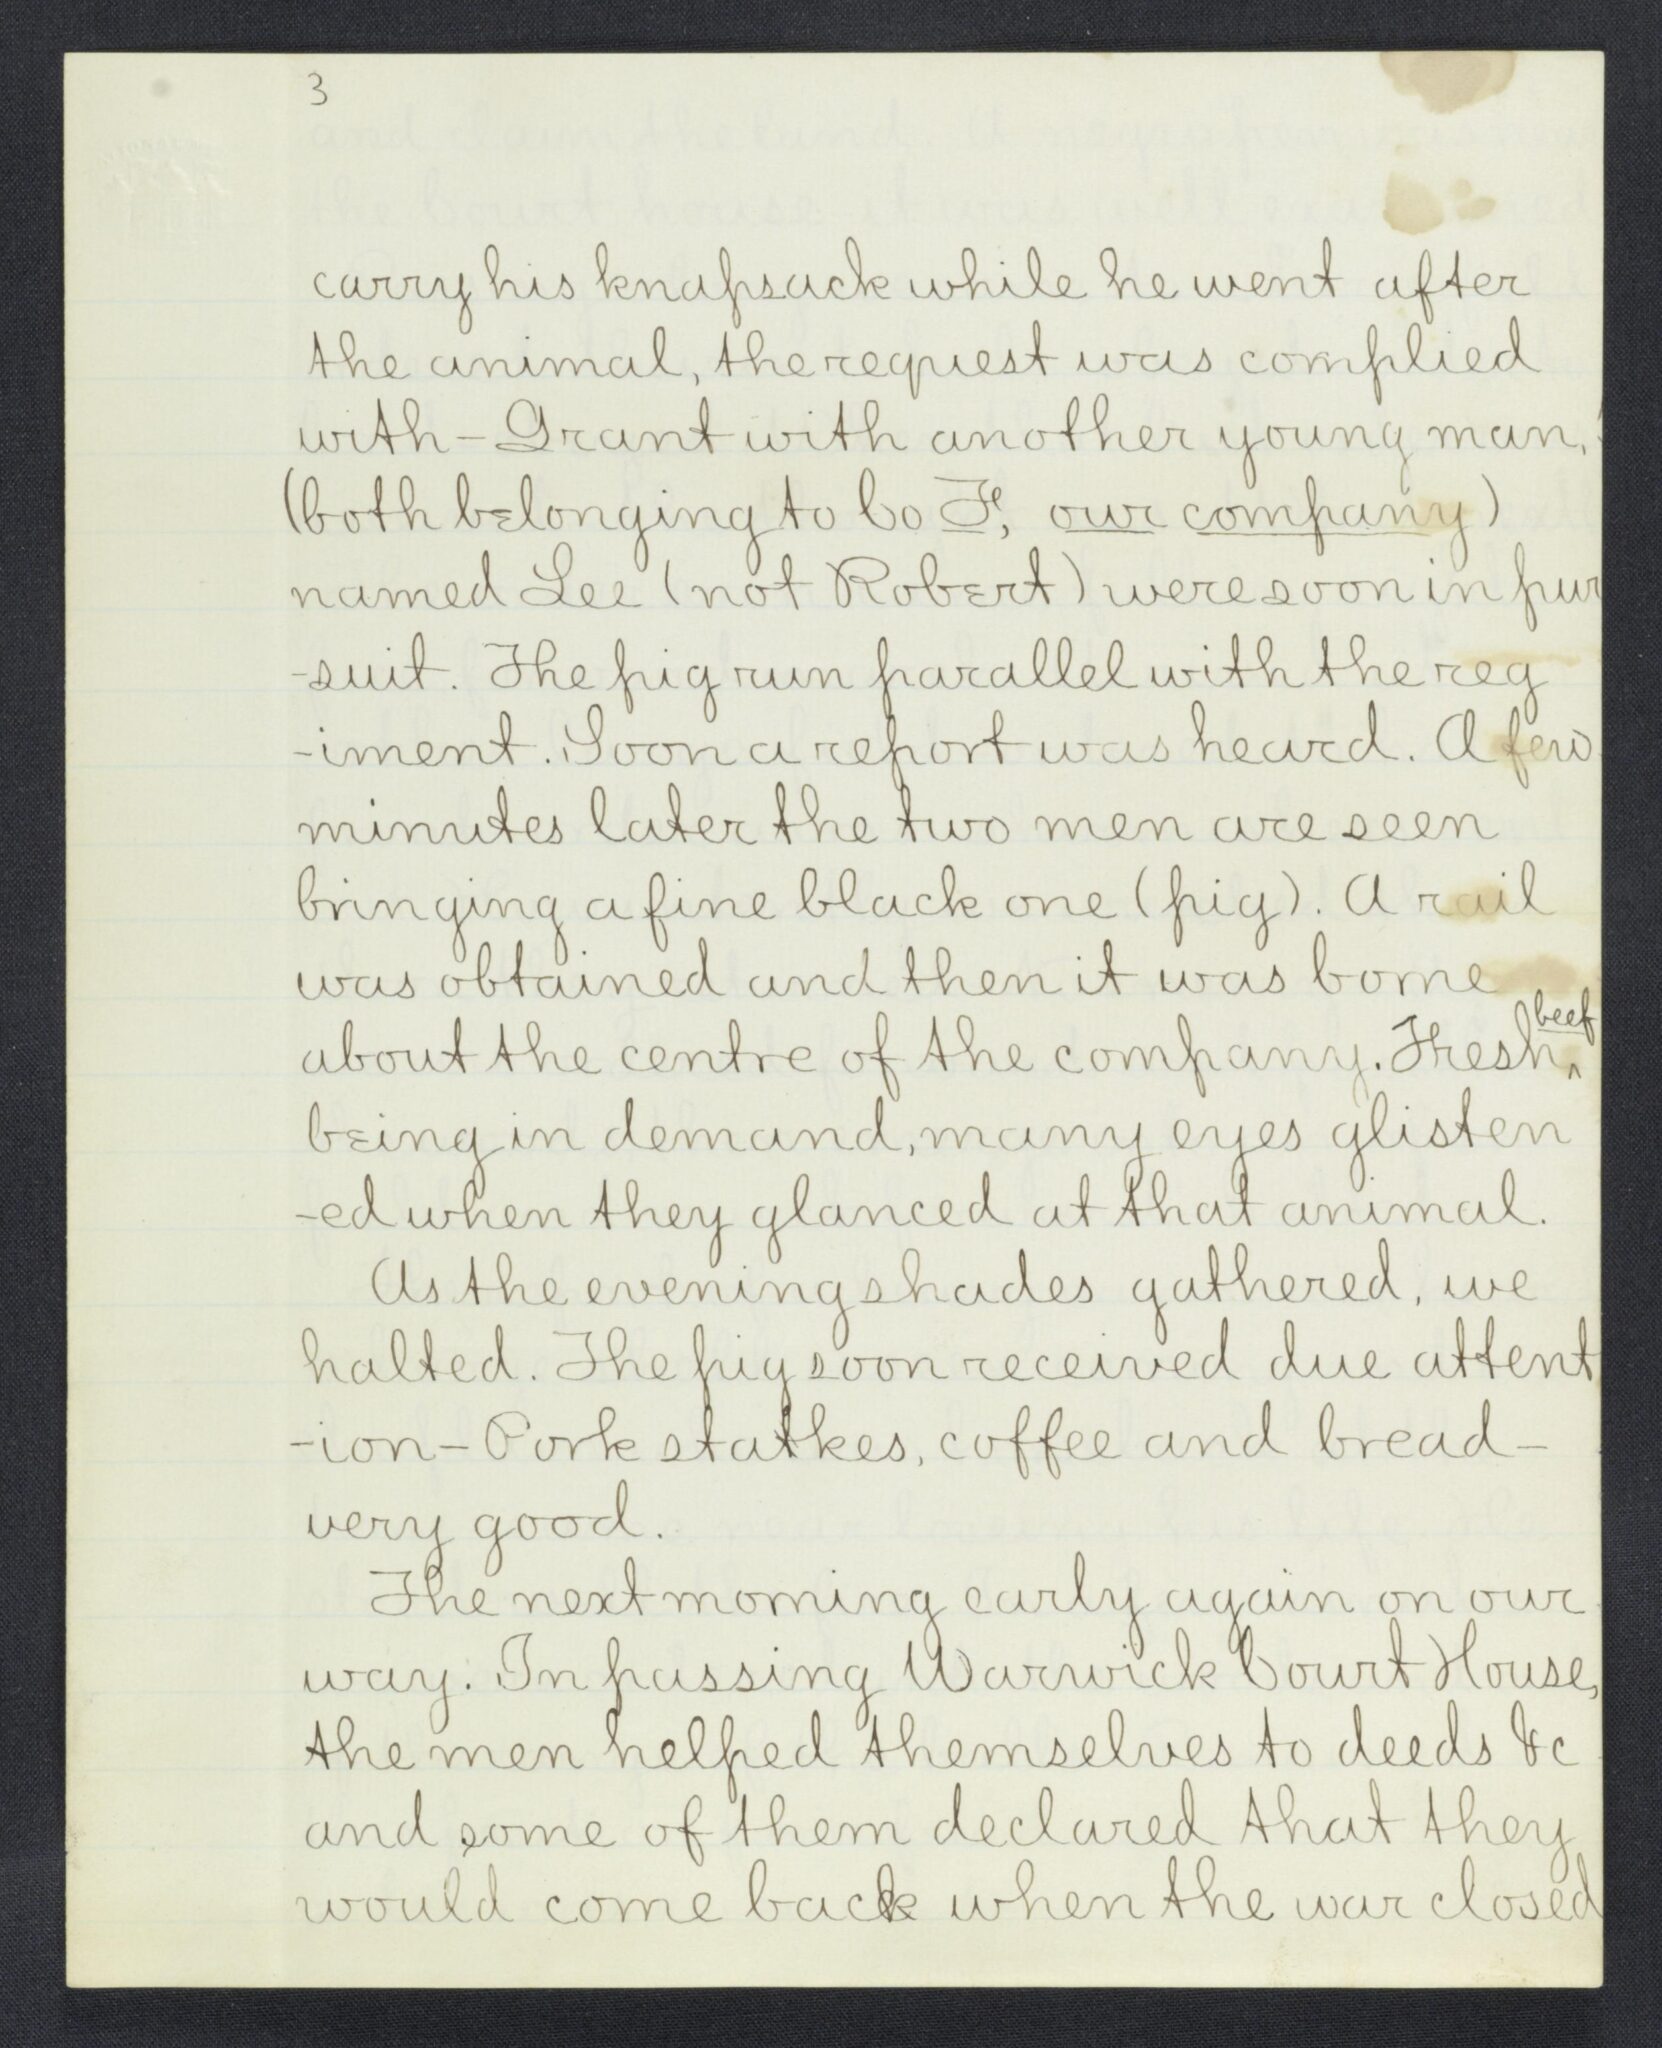 3
carry his knapsack while he went after
the animal, the request was complied
with - Grant with another young man,
(both belonging to Co F, our company)
named Lee (not Robert) were soon in pur
-suit. The pig run parallel with the reg
-iment. Soon a report was heard. A few
minutes later the two men are seen
bringing a fine black one (pig). A rail
was obtained and then it was borne
beef
about the centre of the company. Fresh ^
being in demand, many eyes glisten
-ed when they glanced at that animal.
As the evening shades gathered, we
halted. The pig soon received due attent
-ion - Pork statkes, coffee and bread -
very good.
The next morning early again on our
way. In passing Warwick Court House,
the men helped themselves to deeds &c
and some of them declared that they
would come back when the war closed